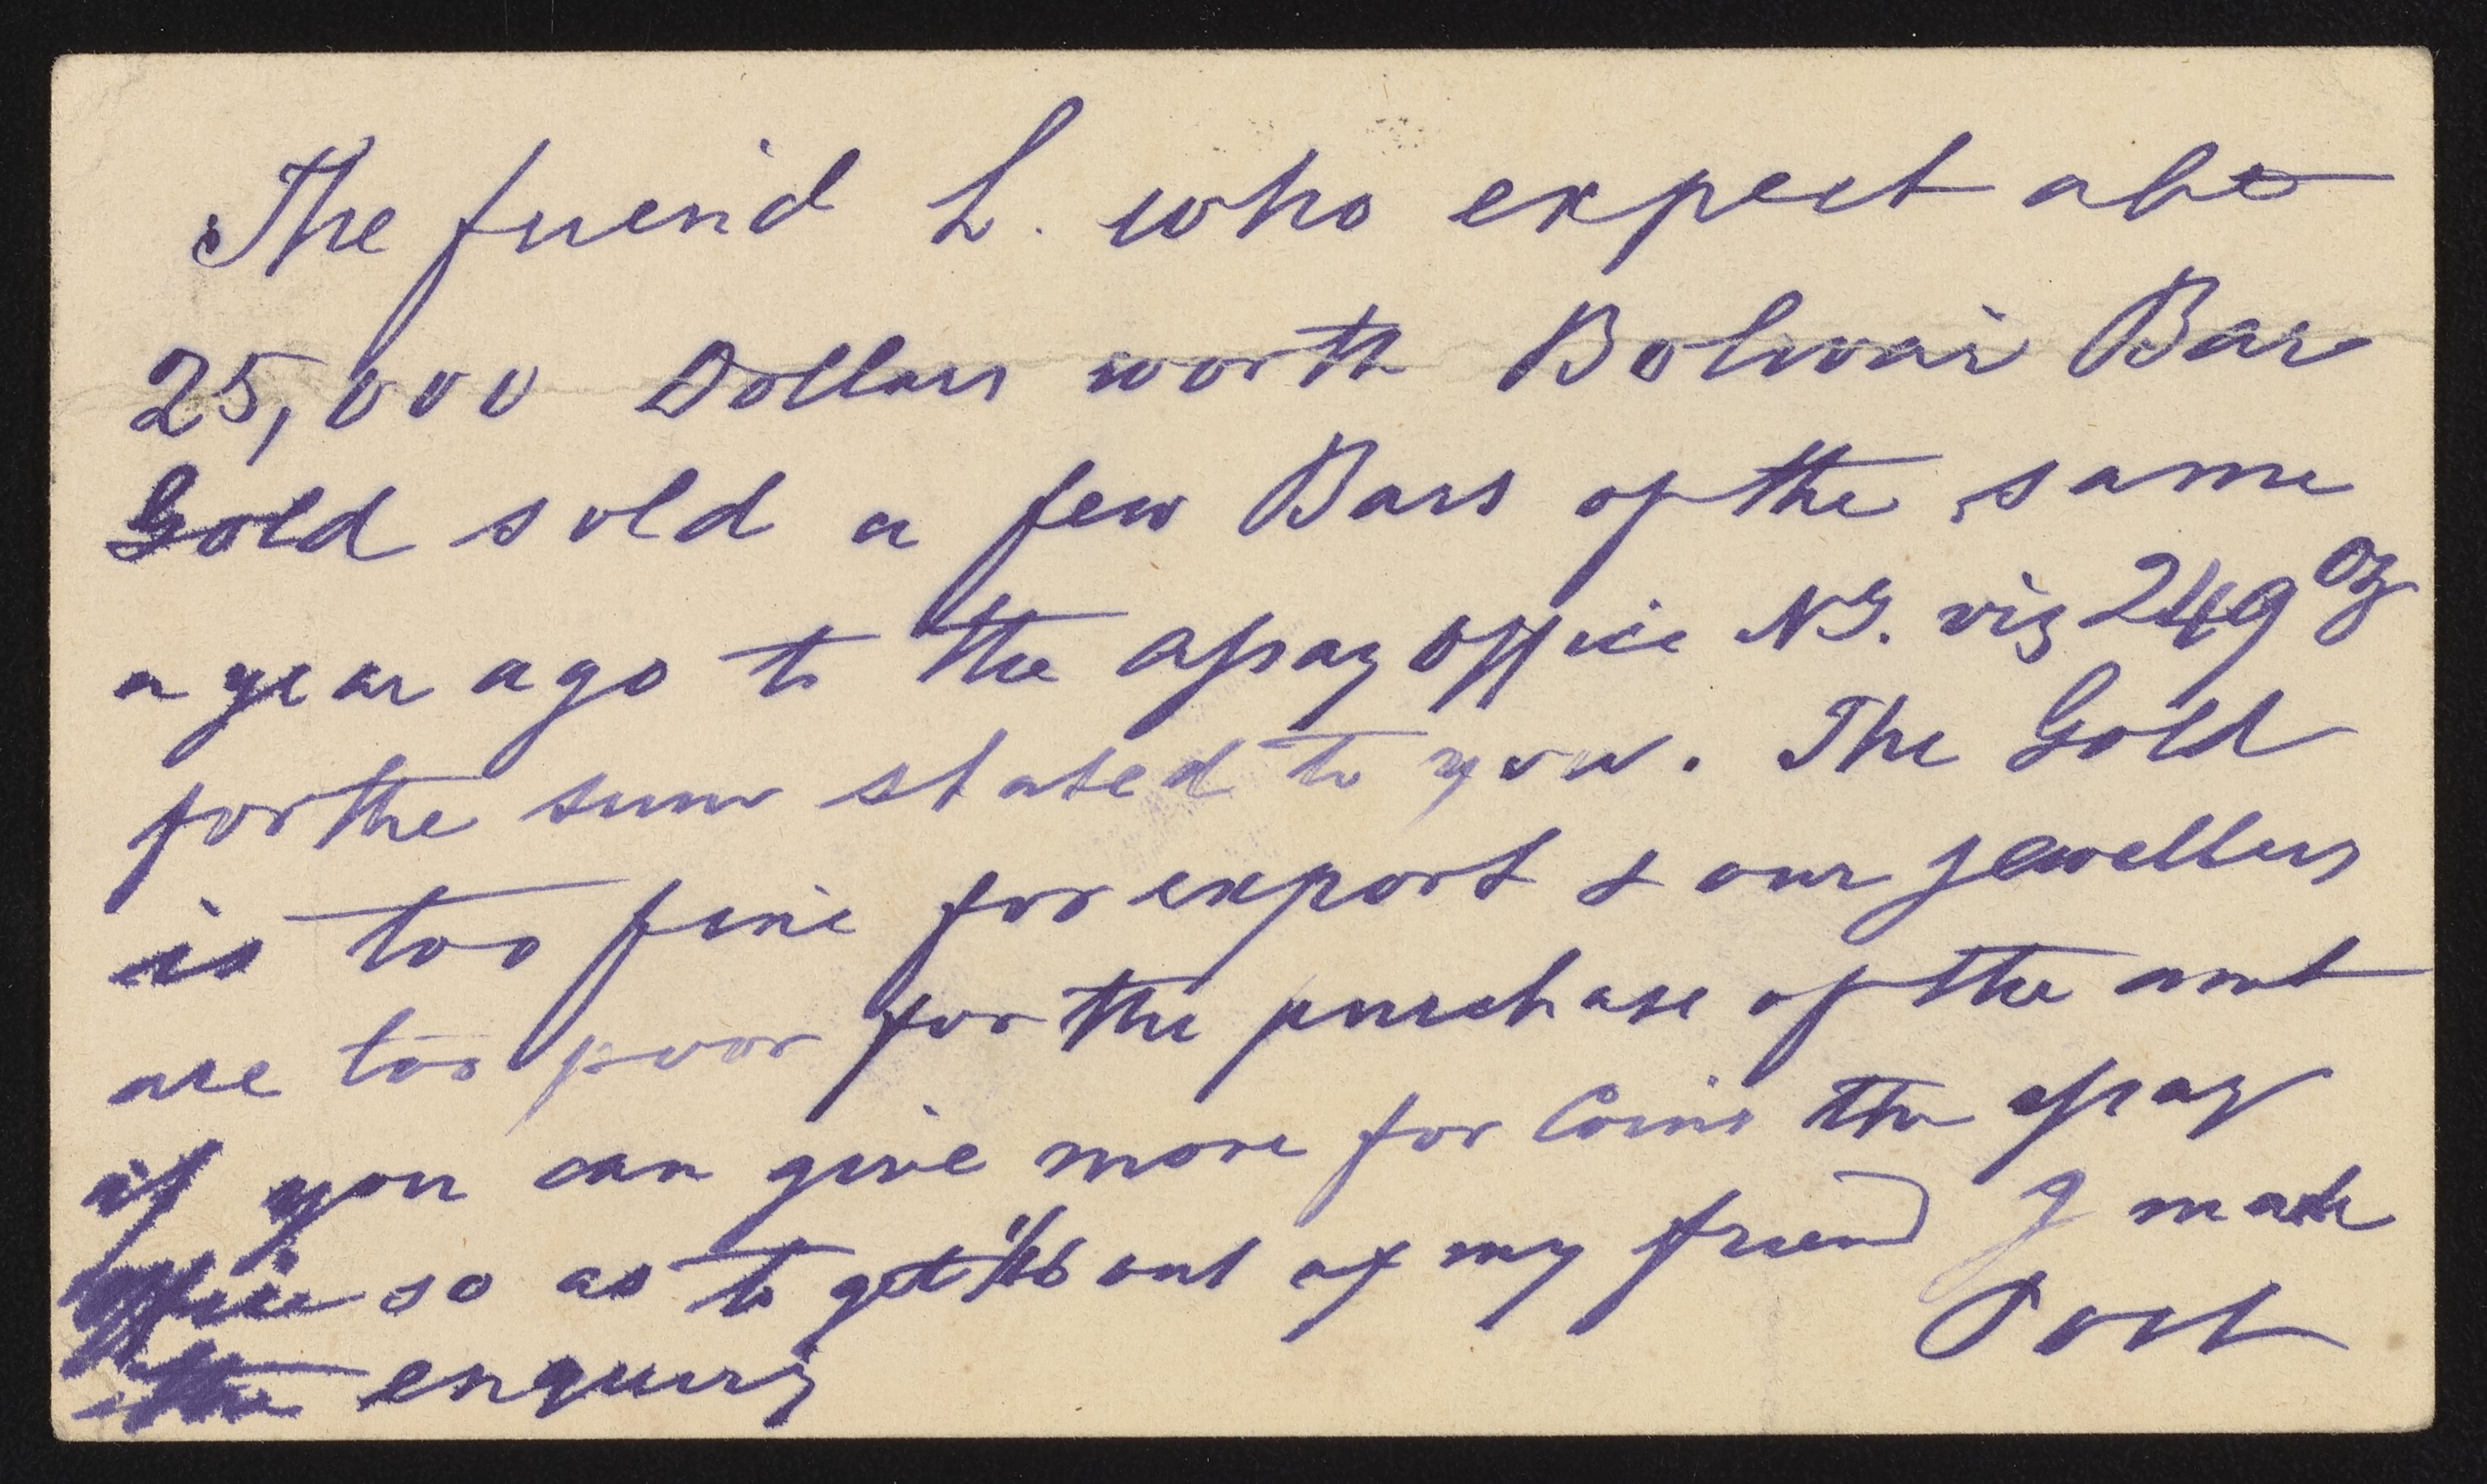 The friend L. who expect abt
25,000 Dollars worth Bolivar Bar
Gold sold a few Bars of the same
a year ago to the assay office N.Y. viz 249 oz
for the sum stated to you. The Gold
is too fine for export & our jewellers
are too poor for the purchase of the amt
if you can give more for Coins the assay
office so as to get out of my friend I made
the enquiry Post